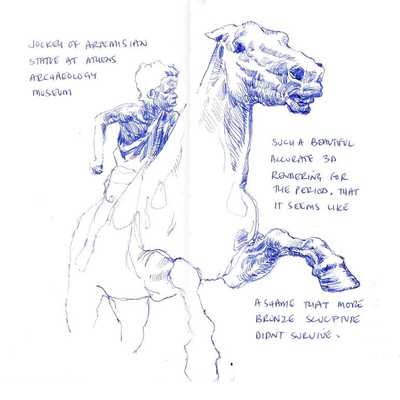 JOCKEY OF ARTEMISIAN
STATUE AT ATHENS
ARCHAEOLOGY
MUSEUM
SUCH A BEAUTIFUL
ACCURATE 3D
RENDERING FOR
THE PERIOD. THAT
IT SEEMS LIKE
A SHAME THAT MORE
BRONZE SCULPTURE
DIDNT SURVIVE.